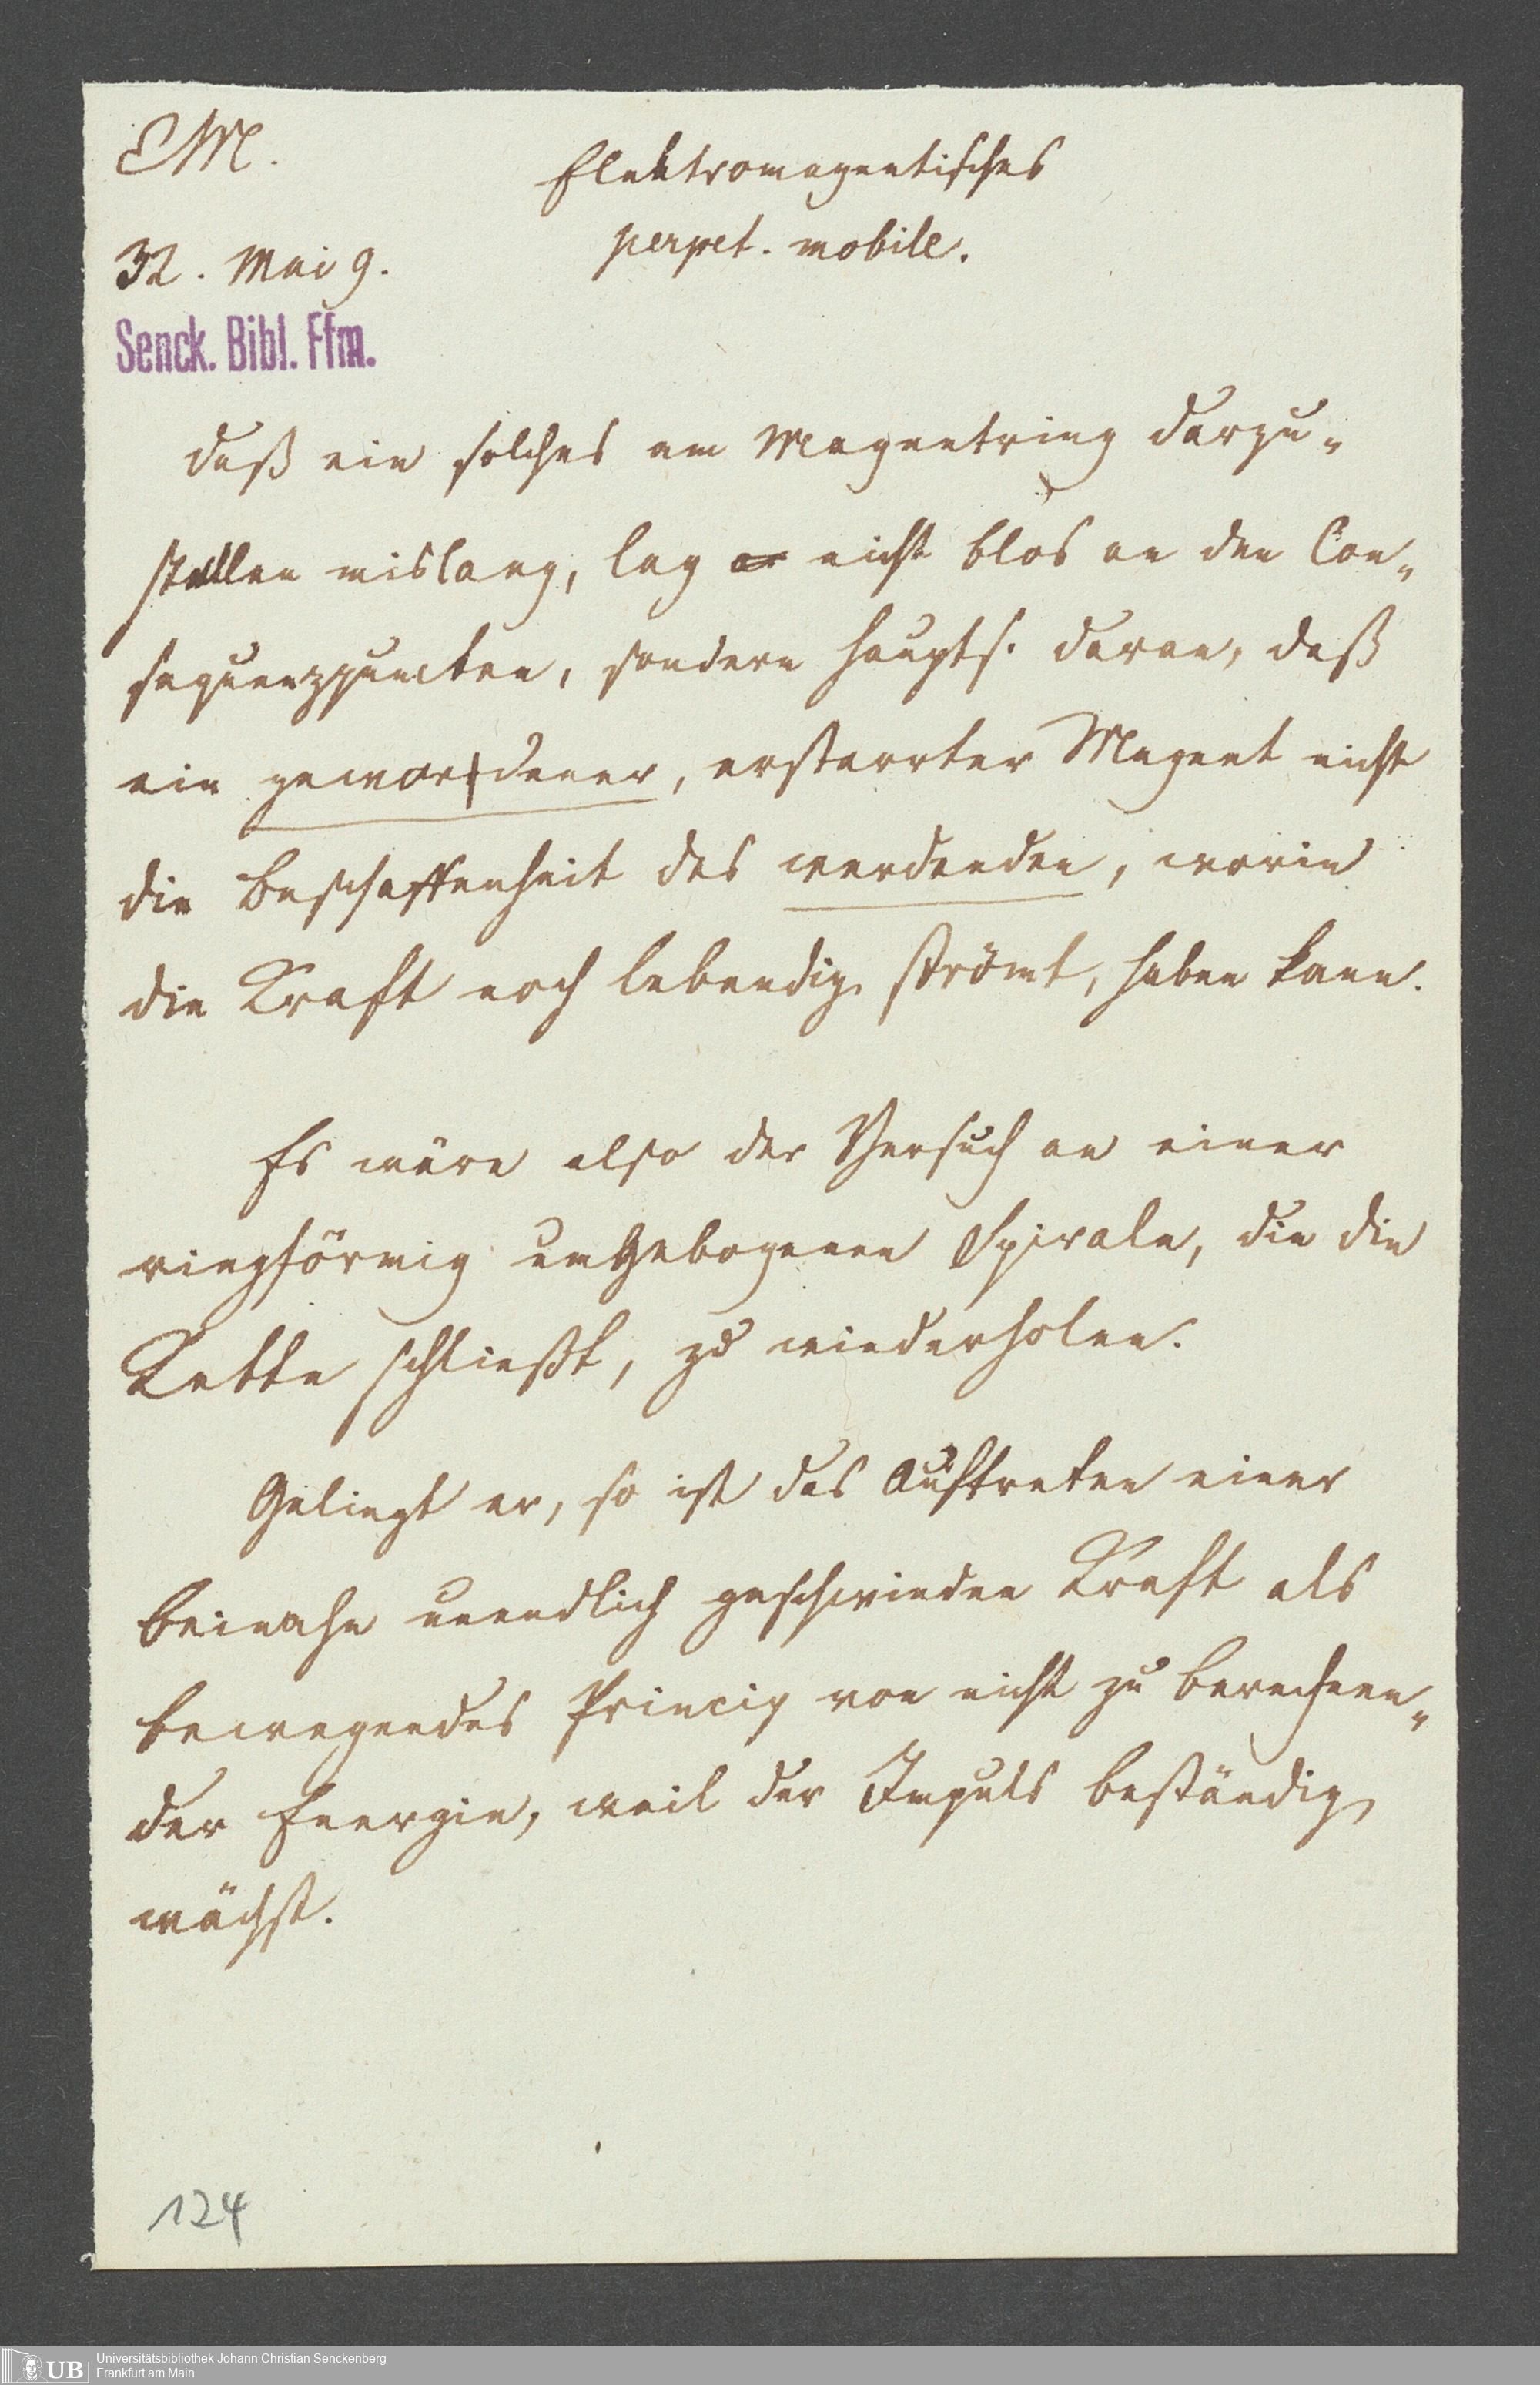 EM.
Elektromagnetisches
perpet. mobile.
32. Mai 9.
Senck. Bibl. Ffm.
daß ein solches am Magnetring darzu-
stellen mislang, lag nicht blos an den Con-
sequenzpuncten, sondern haupts. daran, daß
ein gewordener, erstarrter Magnet nicht
die Beschaffenheit des werdenden, worin
die Kraft noch lebendig strömt, haben kann.
Es wäre also der Versuch an einer
ringförmig umgebogenen Spirale, die die
Kette schließt, zu wiederholen.
Gelingt er, so ist das Auftreten einer
beinahe unendlich geschwinden Kraft als
bewegendes Princip von nicht zu berechnen-
der Energie, weil der Impuls beständig
wächst.
124
UB
Universitätsbibliothek Johann Christian Senckenberg
Frankfurt am Main